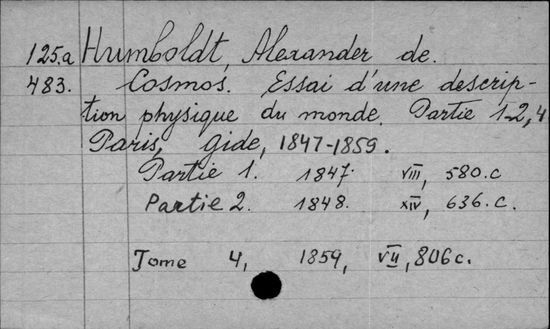 125.a Humboldt, Alexander de.
483. Cosmos. Essai d'une descrip-
tion physique du monde. Partie 1-2, 4
Paris, Gide, 1847-1859.
Partie 1. 1847. VIII, 580.c
Partie 2. 1848. XIV, 636.c.
Tome 4, 1859, VII, 806c.